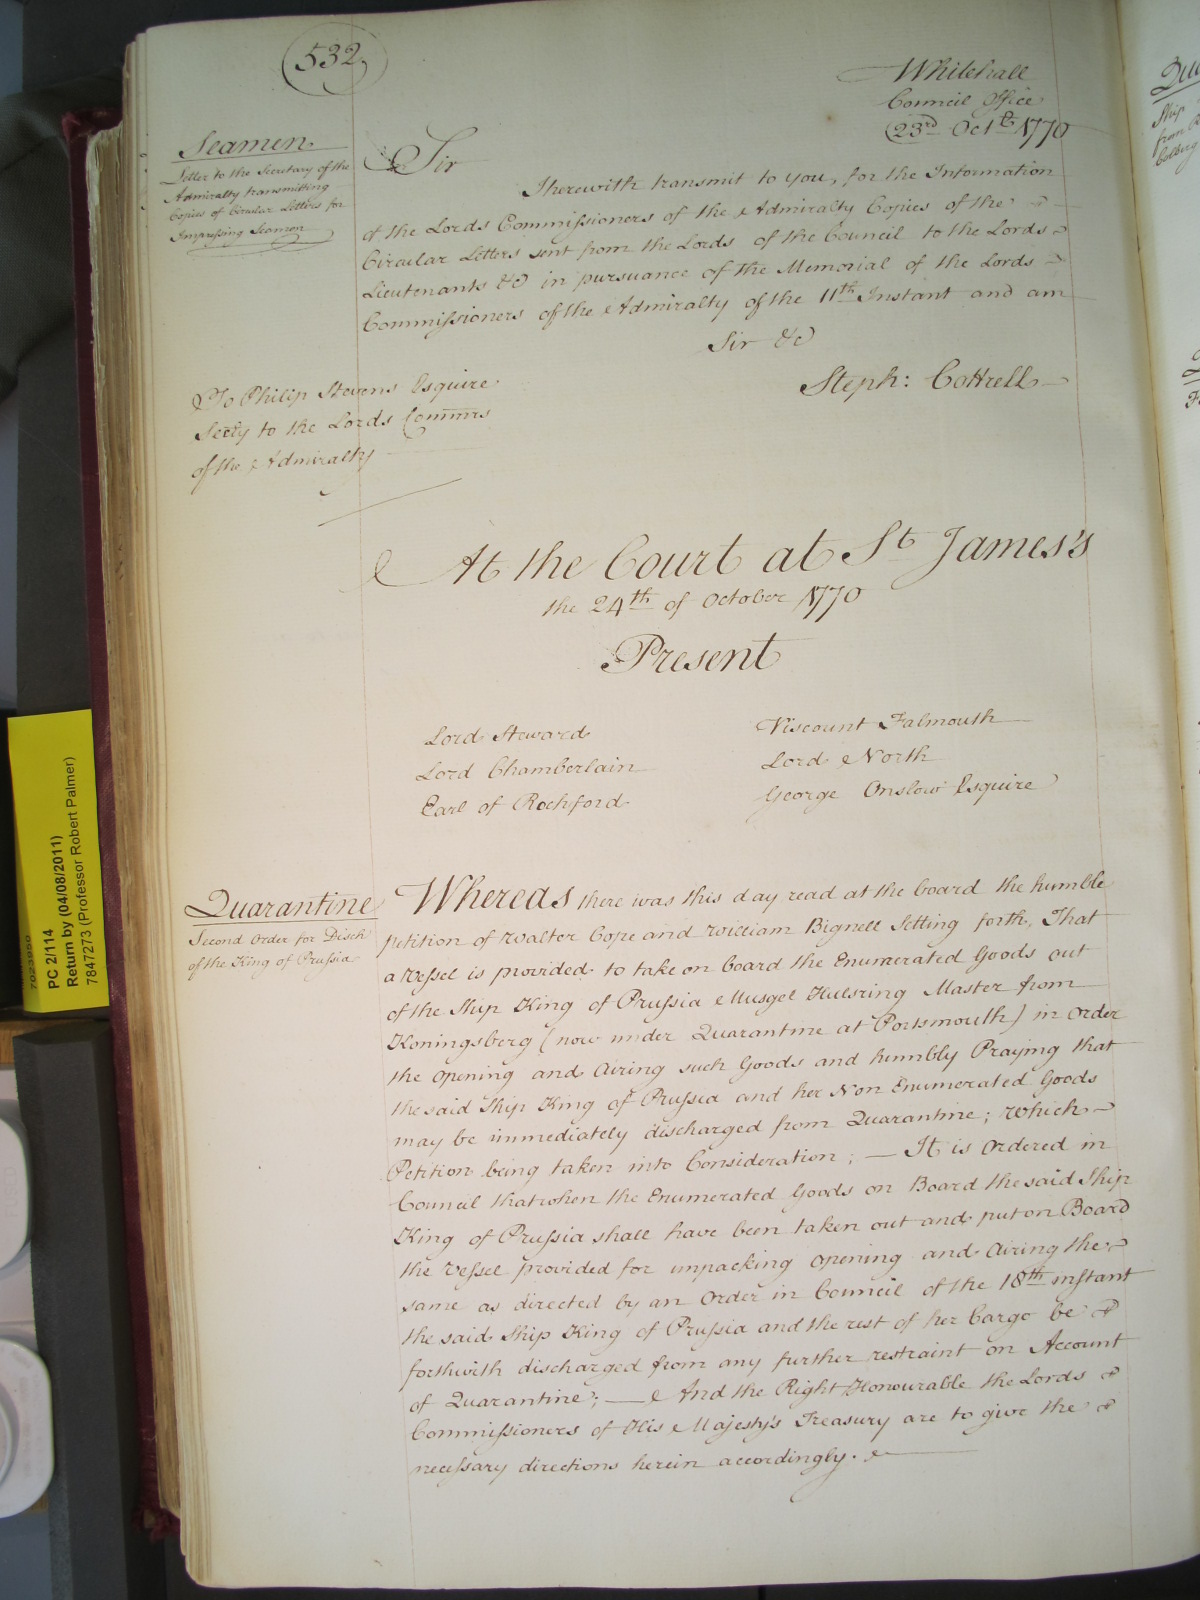 532
Whitehall
Council Office
23rd Octr 1770
Seamen
Letter to the Secretary of the
Admiralty transmitting
Copies of Circular Letters for
Impressing Seamen
Sir
I herewith transmit to you, for the Information
of the Lords Commissioners of the Admiralty Copies of the
Circular Letters sent from the Lords of the Council to the Lords
Lieutenants &c in pursuance of the Memorial of the Lords
Commissioners of the Admiralty of the 11th Instant and am
Sir &c
Steph: Cottrell
To Philip Stevens Esquire
Secry to the Lords Commrs
of the Admiralty
At the Court at St James's
the 24th of October 1770
Present
Lord Steward
Lord Chamberlain
Earl of Rochford
Viscount Falmouth
Lord North
George Onslow Esquire
Quarantine
Second Order for Disch
of the King of Prussia
Whereas there was this day read at the board the humble
petition of Walter Cope and William Bignell Setting forth, That
a Vessel is provided to take on board the Enumerated Goods out
of the Ship King of Prussia Musgel Hulsring Master from
Koningsberg (now under Quarantine at Portsmouth) in order
the opening and Airing such Goods and humbly Praying that
the said Ship King of Prussia and her Non Enumerated Goods
may be immediately discharged from Quarantine; which
Petition being taken into Consideration; — It is Ordered in
Council that when the Enumerated Goods on Board the said Ship
King of Prussia shall have been taken out and put on Board
the Vessel provided for unpacking opening and Airing the
same as directed by an Order in Council of the 18th instant
the said Ship King of Prussia and the rest of her Cargo be
forthwith discharged from any further restraint on Account
of Quarantine; — And the Right Honourable the Lords
Commissioners of His Majesty's Treasury are to give the
necessary directions herein accordingly.
PC 2/114
Return by (04/08/2011)
7847273 (Professor Robert Palmer)